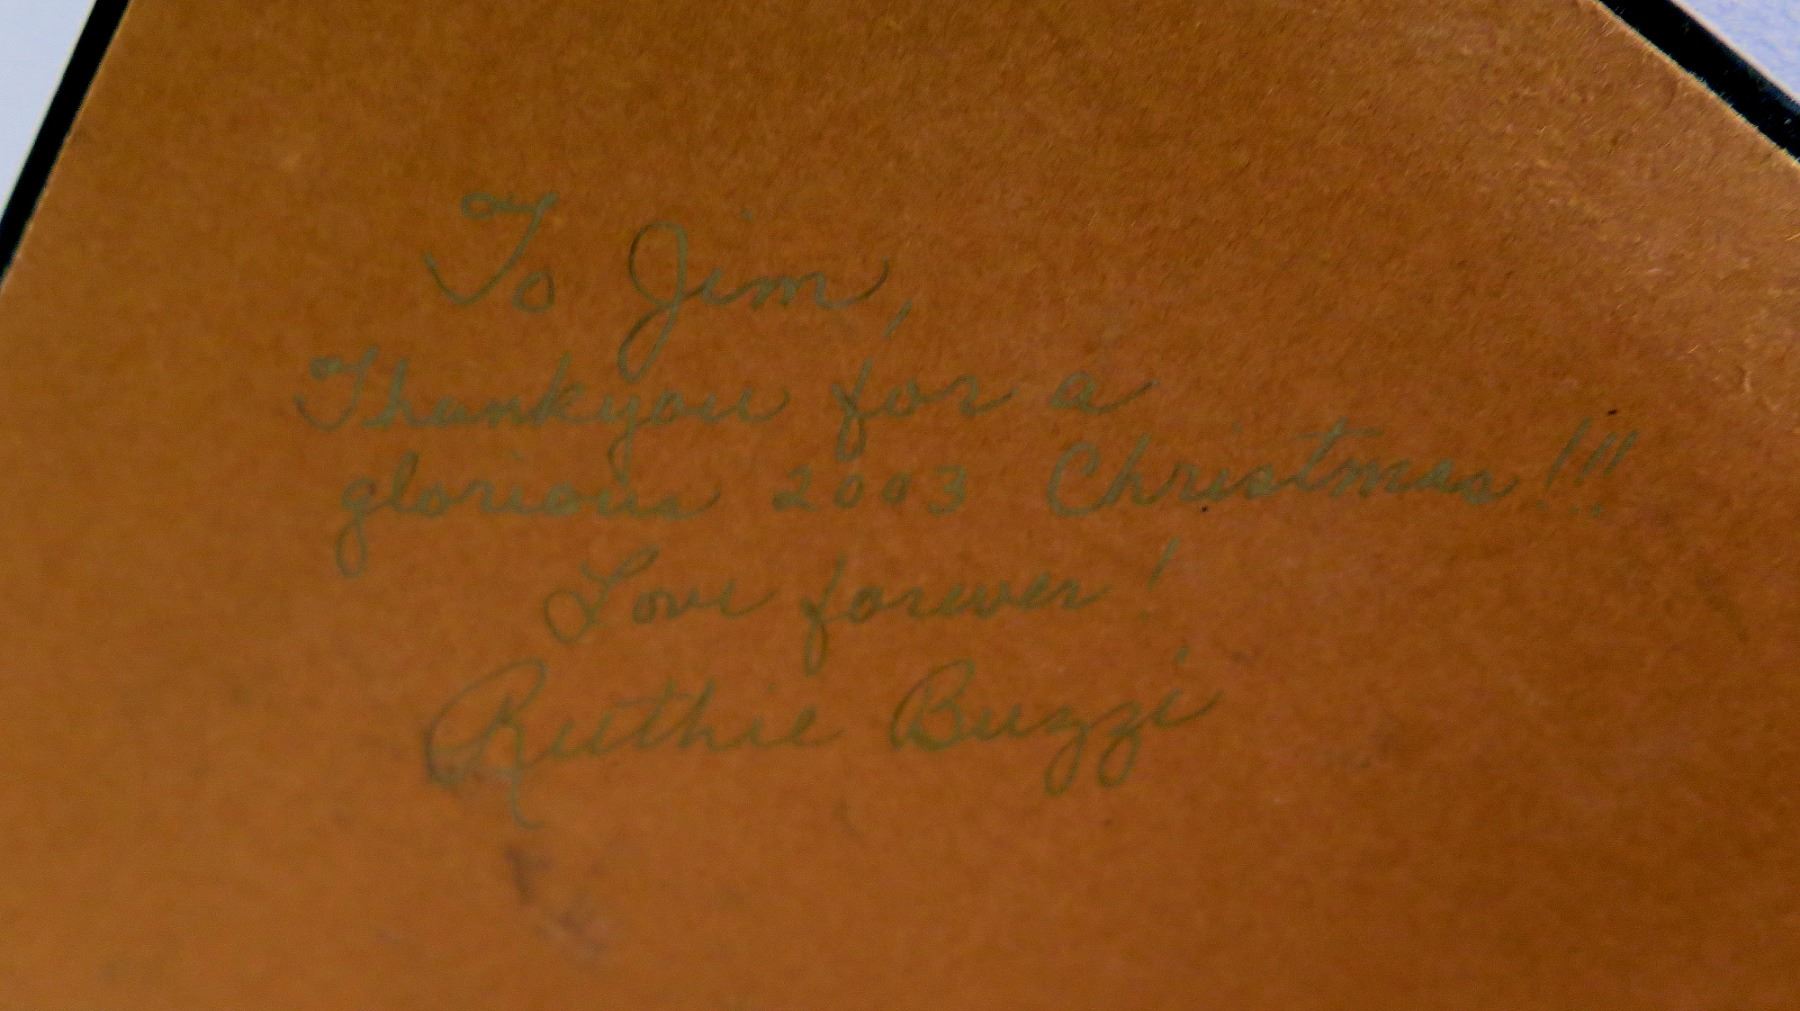 To Jim,
Thankyou for a
glorious 2003 Christmas!!!
Love forever!
Ruthie Buzzi